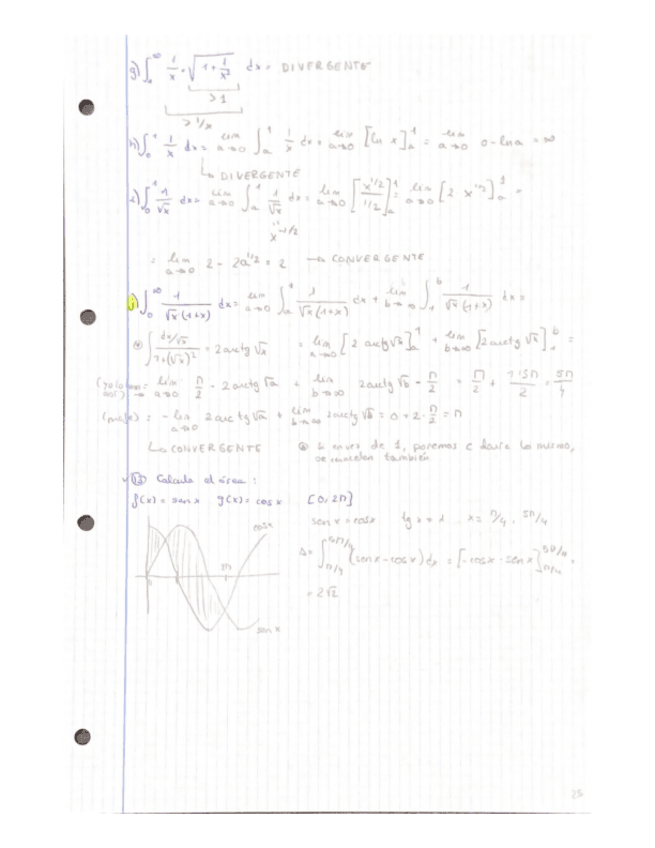 g) ∫₁^∞ 1/x · √(1 + 1/x²) dx = DIVERGENTE
> 1
> 1/x
h) ∫₀¹ 1/x dx = lim a→0 ∫ₐ¹ 1/x dx = lim a→0 [ln x]ₐ¹ = lim a→0 0 - ln a = ∞
↳ DIVERGENTE
i) ∫₀¹ 1/√x dx = lim a→0 ∫ₐ¹ 1/√x dx = lim a→0 [x^1/2 / 1/2]ₐ¹ = lim a→0 [2 x^1/2]ₐ¹ =
x^-1/2
= lim a→0 2 - 2a^1/2 = 2 → CONVERGENTE
j) ∫₀^∞ 1/(√x (1+x)) dx = lim a→0 ∫ₐ¹ 1/(√x (1+x)) dx + lim b→∞ ∫₁^b 1/(√x (1+x)) dx =
∫ (dx/√x)/(1+(√x)²) = 2 arctg √x = lim a→0 [2 arctg √x]ₐ¹ + lim b→∞ [2 arctg √x]₁^b =
lim a→0 π/2 - 2 arctg √a + lim b→∞ 2 arctg √b - π/2 =
= - lim a→0 2 arctg √a + lim b→∞ 2 arctg √b = 0 + 2 · π/2 = π
↳ CONVERGENTE
si en vez de 1, ponemos c daría lo mismo,
se cancelan también
12 Calcula el área:
f(x) = sen x g(x) = cos x [0, 2π]
sen x = cos x tg x = 1 x = π/4, 5π/4
cos x
A = ∫_π/4^5π/4 (sen x - cos x) dx = [-cos x - sen x]_π/4^5π/4 =
= 2√2
sen x
25